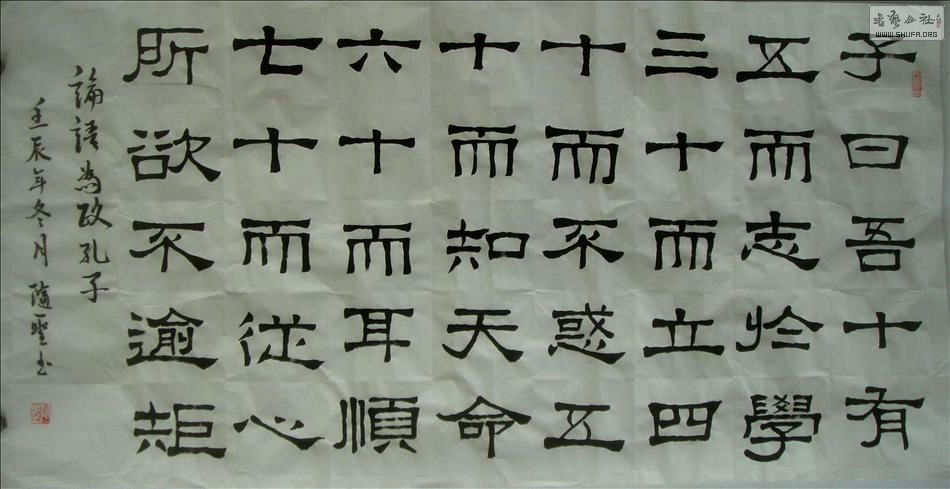 子曰吾十有
五而志於學
三十而立四
十而不惑五
十而知天命
六十而耳順
七十而從心
所欲不逾矩
論語為政孔子
壬辰年冬月 书
书艺公社
WWW.SHUFA.ORG